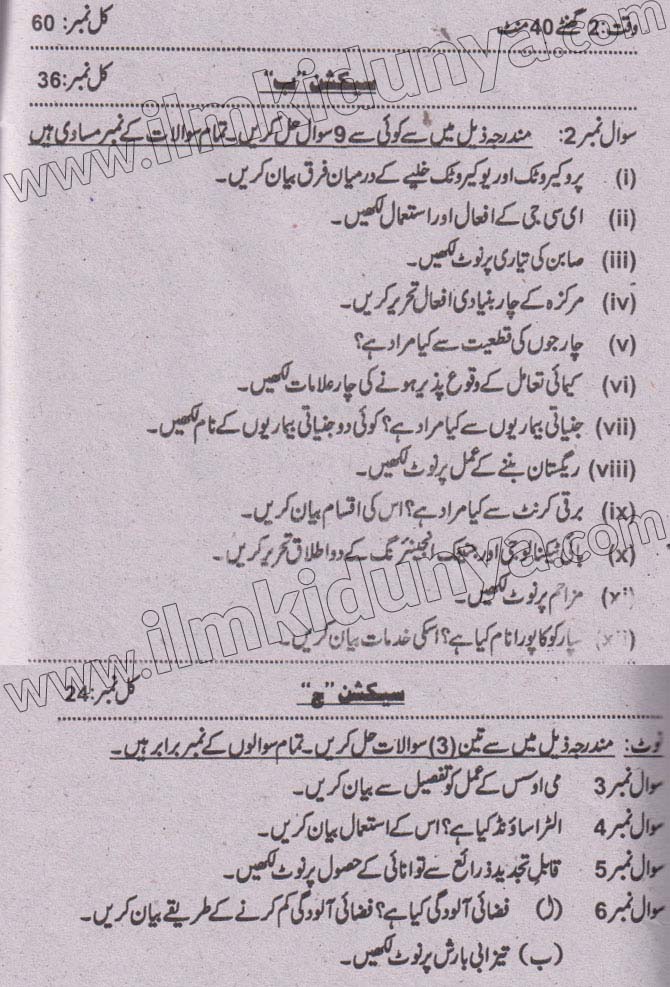 وقت: 2 گھنٹے 40 منٹ کل نمبر: 60
سیکشن "ب" کل نمبر: 36
سوال نمبر 2: مندرجہ ذیل میں سے کوئی سے 9 سوال حل کریں۔ تمام سوالات کے نمبر مساوی ہیں
(i) پروکیروٹک اور یوکیروٹک خلیے کے درمیان فرق بیان کریں۔
(ii) ای سی جی کے افعال اور استعمال لکھیں۔
(iii) صابن کی تیاری پر نوٹ لکھیں۔
(iv) مرکزہ کے چار بنیادی افعال تحریر کریں۔
(v) چارجوں کی قطعیت سے کیا مراد ہے؟
(vi) کیمائی تعامل کے وقوع پذیر ہونے کی چار علامات لکھیں۔
(vii) جنیاتی بیماریوں سے کیا مراد ہے؟ کوئی دو جنیاتی بیماریوں کے نام لکھیں۔
(viii) ریگستان بننے کے عمل پر نوٹ لکھیں۔
(ix) برقی کرنٹ سے کیا مراد ہے؟ اس کی اقسام بیان کریں۔
(x) بائیوٹیکنالوجی اور جینٹک انجینئرنگ کے دو اطلاق تحریر کریں۔
(xi) مزاحم پر نوٹ لکھیں۔
(xii) سپارکو کا پورا نام کیا ہے؟ اسکی خدمات بیان کریں۔
سیکشن "ج" کل نمبر: 24
نوٹ: مندرجہ ذیل میں سے تین (3) سوالات حل کریں۔ تمام سوالوں کے نمبر برابر ہیں۔
سوال نمبر 3 می اوسس کے عمل کو تفصیل سے بیان کریں۔
سوال نمبر 4 الٹراساؤنڈ کیا ہے؟ اس کے استعمال بیان کریں۔
سوال نمبر 5 قابلِ تجدید ذرائع سے توانائی کے حصول پر نوٹ لکھیں۔
سوال نمبر 6 (ا) فضائی آلودگی کیا ہے؟ فضائی آلودگی کم کرنے کے طریقے بیان کریں۔
(ب) تیزابی بارش پر نوٹ لکھیں۔
www.ilmkidunya.com
www.ilmkidunya.com